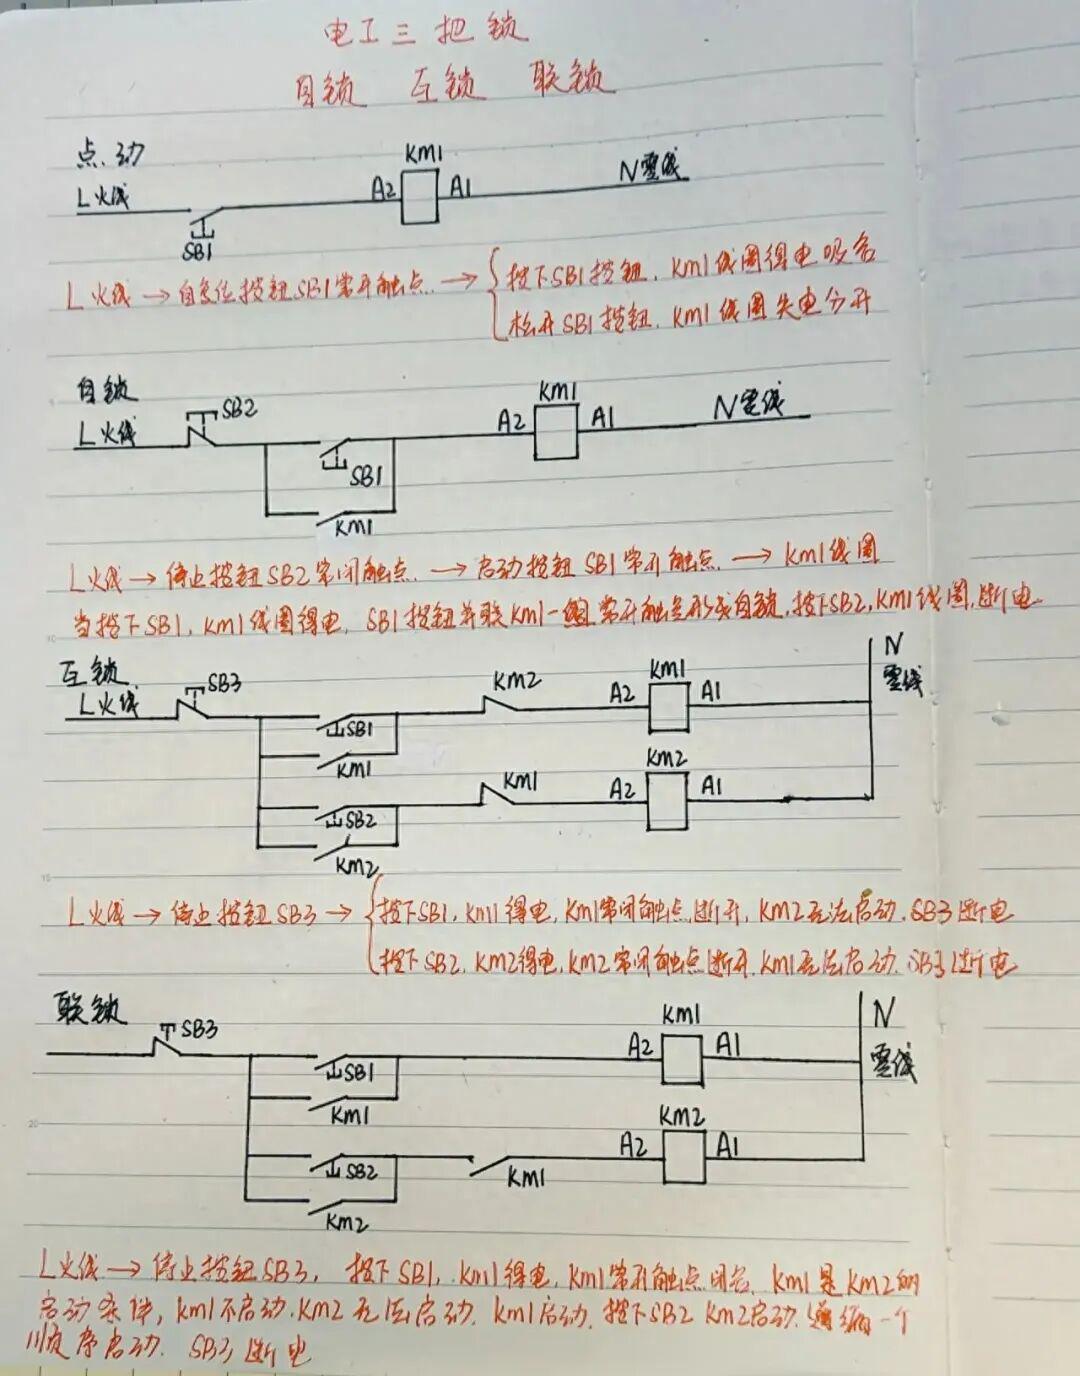 电工三把锁
自锁 互锁 联锁
点动
KM1
L火线 A2 A1 N零线
SB1
L火线→自复位按钮SB1常开触点.→{按下SB1按钮.KM1线圈得电吸合
松开SB1按钮.KM1线圈失电分开
自锁
SB2 KM1
L火线 A2 A1 N零线
SB1
KM1
L火线→停止按钮SB2常闭触点.→启动按钮SB1常开触点.→KM1线圈
当按下SB1,KM1线圈得电,SB1按钮并联KM1一组常开触点形成自锁,按下SB2,KM1线圈,断电
互锁 N
SB3 KM2 KM1 零线
L火线 A2 A1
SB1
KM1 KM2
KM1 A2 A1
SB2
KM2
L火线→停止按钮SB3→{按下SB1,KM1得电,KM1常闭触点.断开,KM2无法启动.SB3断电
按下SB2,KM2得电,KM2常闭触点断开.KM1无法启动.SB3断电
联锁 N
SB3 KM1 零线
A2 A1
SB1
KM1 KM2
A2 A1
SB2 KM1
KM2
L火线→停止按钮SB3, 按下SB1,KM1得电,KM1常开触点闭合.KM1是KM2的
启动条件,KM1不启动.KM2无法启动.KM1启动.按下SB2 KM2启动.一个
顺序启动.SB3断电